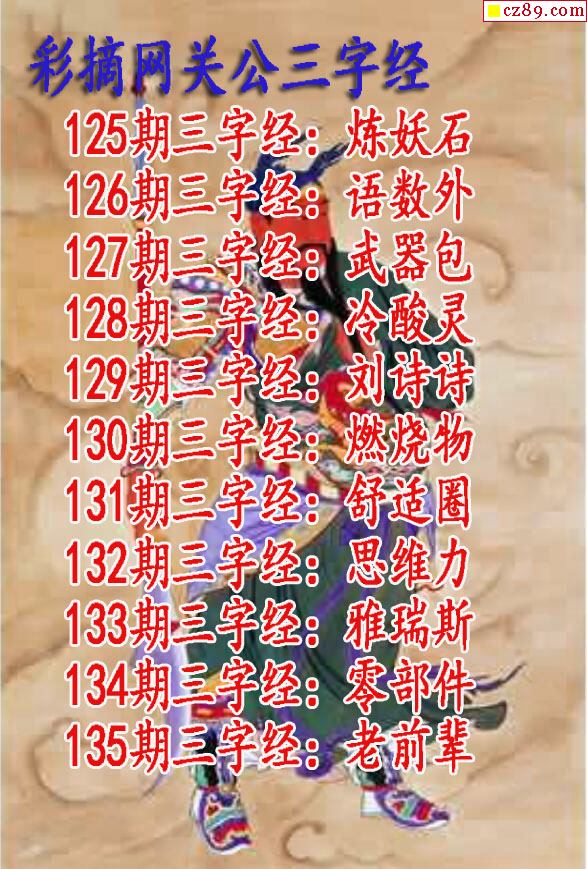 cz89.com
彩摘网关公三字经
125期三字经：炼妖石
126期三字经：语数外
127期三字经：武器包
128期三字经：冷酸灵
129期三字经：刘诗诗
130期三字经：燃烧物
131期三字经：舒适圈
132期三字经：思维力
133期三字经：雅瑞斯
134期三字经：零部件
135期三字经：老前辈